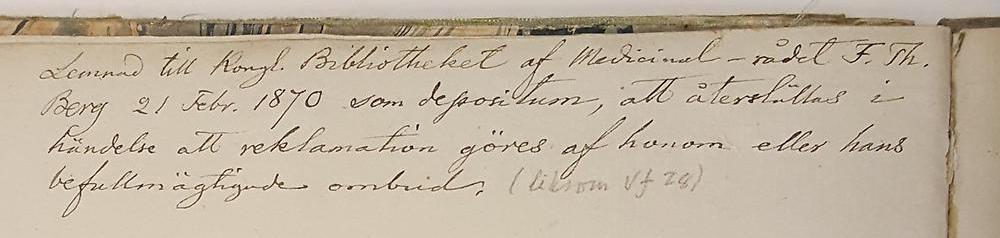 Lemnad till Kongl. Bibliotheket af Medicinal-rådet F. Th.
Berg 21 Febr. 1870 som depositum, att återställas i
händelse att reklamation göres af honom eller hans
befullmägtigade ombud. (liksom Vf 28)